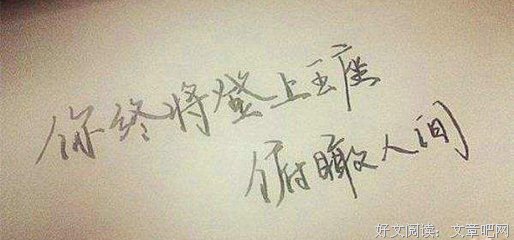 你终将登上王座
俯瞰人间
好文阅读：文章吧网